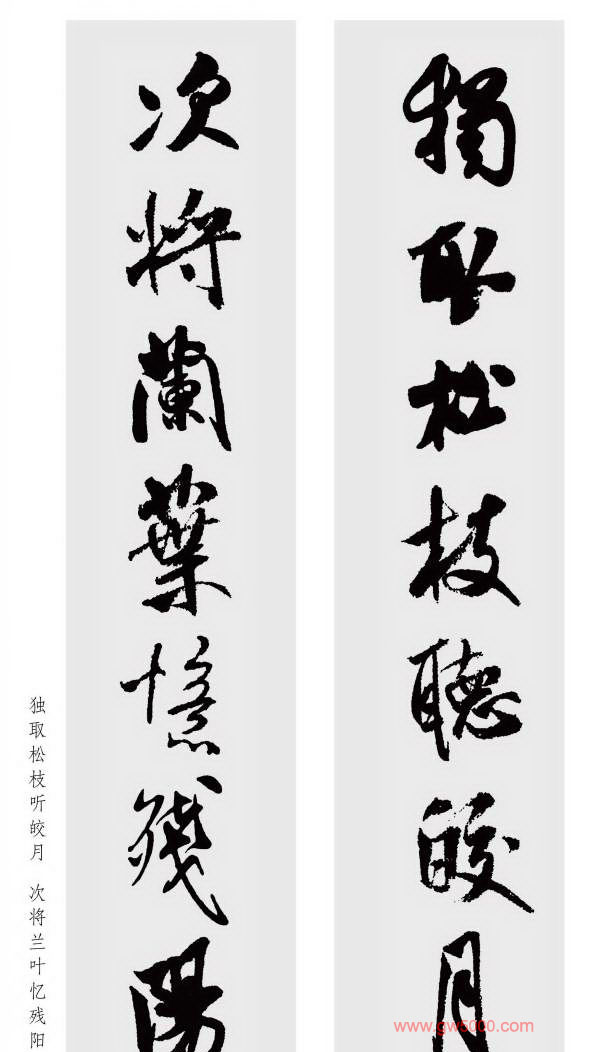 獨取松枝聽皎月
次將蘭葉憶殘陽
独取松枝听皎月 次将兰叶忆残阳
www.gw5000.com